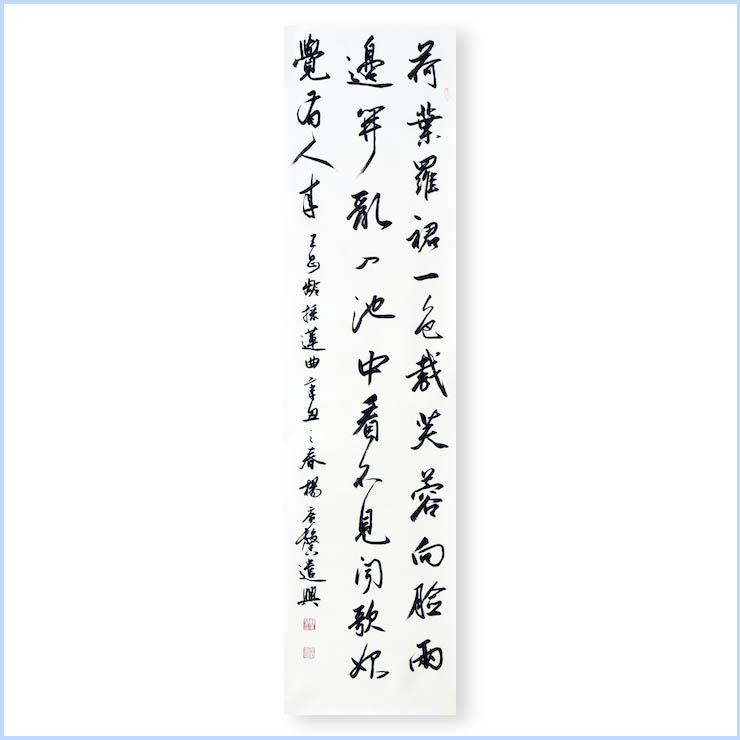 荷葉羅裙一色裁芙蓉向臉兩
邊開亂入池中看不見聞歌始
覺有人來 王昌齡採蓮曲辛丑之春楊馨遣興